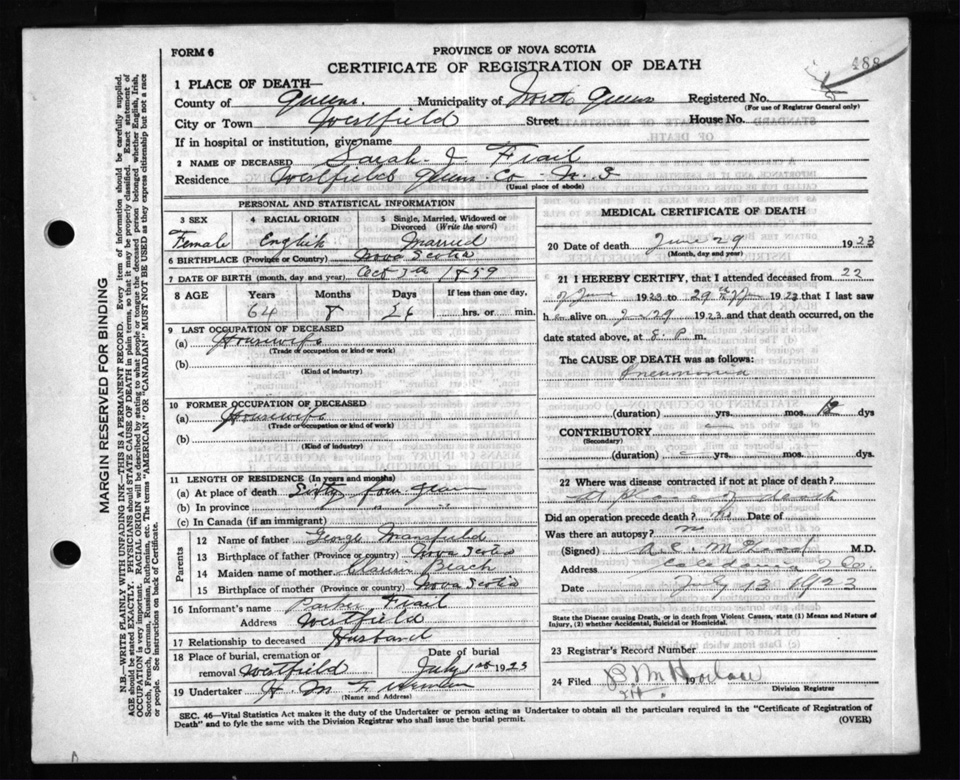 FORM 6
PROVINCE OF NOVA SCOTIA
488
CERTIFICATE OF REGISTRATION OF DEATH
1 PLACE OF DEATH—
County of Queens. Municipality of North Queens Registered No.
(For use of Registrar General only)
City or Town Westfield Street House No.
If in hospital or institution, give name
2 NAME OF DECEASED Sarah J. Frail
Residence Westfield Queens Co N.S
(Usual place of abode)
PERSONAL AND STATISTICAL INFORMATION
3 SEX 4 RACIAL ORIGIN 5 Single, Married, Widowed or Divorced (Write the word)
Female English Married
6 BIRTHPLACE (Province or Country) Nova Scotia
7 DATE OF BIRTH (month, day and year) Oct 3rd 1859
8 AGE Years Months Days If less than one day,
64 8 26 hrs. or min.
9 LAST OCCUPATION OF DECEASED
(a) Housewife
(Trade or occupation or kind of work)
(b)
(Kind of industry)
10 FORMER OCCUPATION OF DECEASED
(a) Housewife
(Trade or occupation or kind of work)
(b)
(Kind of industry)
11 LENGTH OF RESIDENCE (In years and months)
(a) At place of death Sixty four years
(b) In province " "
(c) In Canada (if an immigrant)
Parents
12 Name of father George Mansfield
13 Birthplace of father (Province or country) Nova Scotia
14 Maiden name of mother Beach
15 Birthplace of mother (Province or country) Nova Scotia
16 Informant's name Parker Frail
Address Westfield
17 Relationship to deceased Husband
18 Place of burial, cremation or removal Westfield Date of burial July 1st 1923
19 Undertaker
(Name and Address)
MEDICAL CERTIFICATE OF DEATH
20 Date of death June 29 1923
(Month, day and year)
21 I HEREBY CERTIFY, that I attended deceased from 22
June 1923 to 29th 1923 that I last saw
h alive on J 29 1923 and that death occurred, on the
date stated above, at 8. P. m.
The CAUSE OF DEATH was as follows:
Pneumonia
(duration) yrs. mos. dys
CONTRIBUTORY
(Secondary)
(duration) yrs. mos. dys.
22 Where was disease contracted if not at place of death?
At place of death
Did an operation precede death? No Date of
Was there an autopsy? no
(Signed) M.D.
Address Caledonia Q. Co.
Date July 13 1923
State the Disease causing Death, or in death from Violent Causes, state (1) Means and Nature of Injury, (2) whether Accidental, Suicidal or Homicidal.
23 Registrar's Record Number
24 Filed 19
Division Registrar
SEC. 46—Vital Statistics Act makes it the duty of the Undertaker or person acting as Undertaker to obtain all the particulars required in the "Certificate of Registration of
Death" and to fyle the same with the Division Registrar who shall issue the burial permit. (OVER)
MARGIN RESERVED FOR BINDING
N.B.—WRITE PLAINLY WITH UNFADING INK—THIS IS A PERMANENT RECORD. Every item of information should be carefully supplied.
AGE should be stated EXACTLY. PHYSICIANS should STATE CAUSE OF DEATH in plain terms, so that it may be properly classified. Exact statement of
OCCUPATION is very important. RACIAL ORIGIN will be described by stating to what people or tongue the deceased person belonged whether English, Irish,
Scotch, French, German, Russian, Ruthenian, etc. The terms "AMERICAN" OR "CANADIAN" MUST NOT BE USED as they express citizenship but not a race
or people. See instructions on back of Certificate.